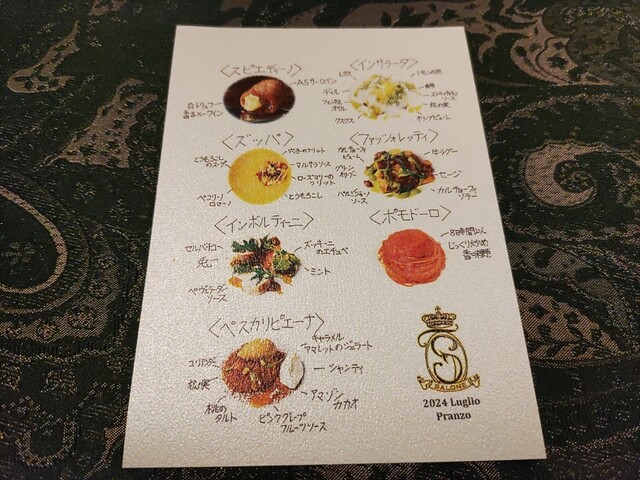 〈スピエディーノ〉
A5サーロイン
白トリュフ
香るメークイン
〈インサラータ〉
レタス
レモンの皮
ディル
フェンネル
オイル
松の実
クスクス
〈ズッパ〉
とうもろこし
のスープ
マルサラソース
ローズマリーの
フリット
ペコリーノ
ロマーノ
とうもろこし
〈ファッツォレッティ〉
カルチョーフィ
ピューレ
牛ラグー
グリーン
オリーブ
セージ
ソース
カルチョーフィ
ソテー
〈インボルティーニ〉
セルバチコ
ズッキーニ
のエチュベ
ミント
ペヴェラーダ
ソース
〈ポモドーロ〉
8時間以上
じっくり炒め
香味野菜
〈ペスカリピエーナ〉
キャラメル
アマレットのジェラート
コリアンダー
シャンティ
松の実
アマゾン
カカオ
桃の
タルト
ピンクグレープ
フルーツソース
SALONE
2024 Luglio
Pranzo